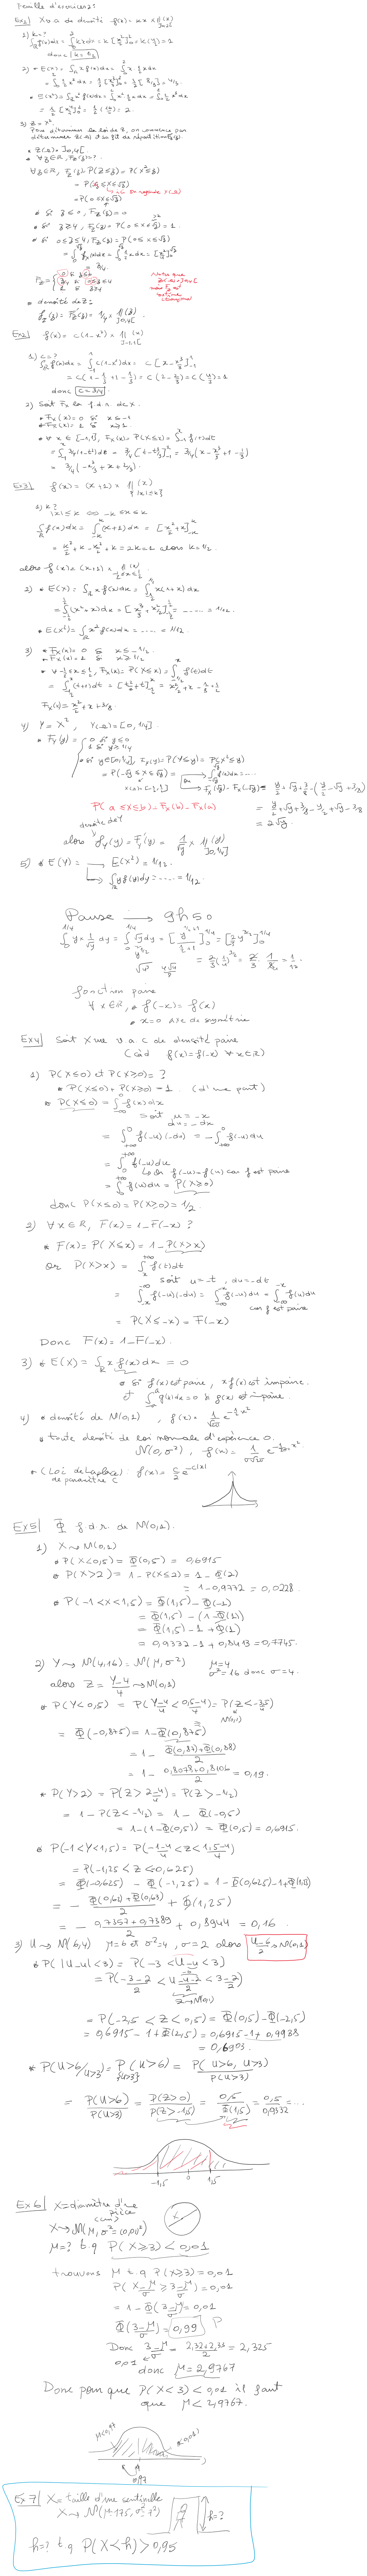 Feuille d'exercices 2:
Ex1| X v.a de densité f(x)= kx × 1(x)
]0,2[
1) k=?
∫f(x)dx = ∫kx dx = k[x²/2] = k(4/2) = 1
donc k = 1/2
2) * E(X) = ∫x f(x)dx = ∫x·1/2 x dx
= ∫1/2 x² dx = 1/2[x³/3] = 1/2[8/3] = 4/3.
* E(X²) = ∫x² f(x)dx = ∫x² 1/2 x dx = ∫1/2 x³ dx
= 1/2 [x⁴/4] = 1/2 (16/4) = 2.
3) Z = X².
Pour déterminer la loi de Z, on commence par
déterminer Z(Ω) et sa fct de répartition(F_Z).
* Z(Ω) = ]0,4[.
* ∀z∈R, F_Z(z)=?
∀z∈R, F_Z(z) = P(Z≤z) = P(X²≤z)
= P(-√z ≤X≤√z)
↳ on regarde X(Ω)
=P(0≤X≤√z)
* si z≤0, F_Z(z)=0
* si z≥4, F_Z(z) = P(0≤X≤√z) = 1.
* si 0≤z≤4, F_Z(z) = P(0≤X≤√z)
= ∫f(x)dx = ∫1/2 x dx = [x²/4]
= z/4.
F_Z = { 0 si z≤0
z/4 si 0≤z≤4
1 si z≥4
* densité de Z:
f_Z(z) = F'_Z(z) = 1/4 × 1(z)
]0,4[
Ex2| f(x) = c(1-x²) × 1(x)
]-1,1[
1) c=?
∫f(x)dx = ∫c(1-x²)dx = c[x-x³/3]
= c(1-1/3+1-1/3) = c(2-2/3) = c(4/3) = 1
donc c=3/4
2) Soit F_X la f.d.r. de X.
* F_X(x) = 0 si x≤-1
* F_X(x) = 1 si x≥1.
* ∀x∈[-1,1], F_X(x) = P(X≤x) = ∫f(t)dt
= ∫3/4(1-t²)dt = 3/4[t-t³/3] = 3/4(x-x³/3+1-1/3)
= 3/4(-x³/3+x+2/3).
Ex3| f(x) = (x+1) × 1(x)
{|x|≤k}
1) k?
|x|≤k ⇔ -k≤x≤k
∫f(x)dx = ∫(x+1)dx = [x²/2+x]
= k²/2+k-k²/2+k = 2k = 1 alors k=1/2.
alors f(x) = (x+1) × 1(x)
2) * E(X) = ∫x f(x)dx = ∫x(x+1)dx
= ∫(x²+x)dx = [x³/3+x²/2] = ...... = 1/12.
* E(X²) = ∫x² f(x)dx = ...... = 1/12.
3) * F_X(x) = 0 si x≤-1/2
* F_X(x) = 1 si x≥1/2
* ∀-1/2≤x≤1/2, F_X(x) = P(X≤x) = ∫f(t)dt
= ∫(t+1)dt = [t²/2+t] = x²/2+x-1/8+1/2
F_X(x) = x²/2+x+3/8.
4) Y = X², Y(Ω) = [0,1/4]
* F_Y(y) = { 0 si y≤0
1 si y≥1/4
* si y∈[0,1/4], F_Y(y) = P(Y≤y) = P(X²≤y)
= P(-√y≤X≤√y) = ∫f(x)dx = ...
ou
F_X(√y) - F_X(-√y) = y/2+√y+3/8-(y/2-√y+3/8)
P(a≤X≤b) = F_X(b) - F_X(a)
= y/2+√y+3/8-y/2+√y-3/8
= 2√y.
densité de Y
alors f_Y(y) = F'_Y(y) = 1/√y × 1(y)
]0,1/4]
5) * E(Y) = → E(X²) = 1/12.
↳ ∫y f(y)dy = ...... = 1/12.
Pause → 9h50
∫y × 1/√y dy = ∫√y dy = [y^(1/2+1)/(1/2+1)] = [2/3 y^(3/2)]
= 2/3(1/4)^(3/2) = 2/3 · 1/8 = 1/12
fonction paire
∀x∈R, * f(-x) = f(x)
* x=0 axe de symétrie
Ex4| Soit X une v.a.c de densité paire
(càd f(x)=f(-x) ∀x∈R)
1) P(X≤0) et P(X≥0) = ?
* P(X≤0) + P(X≥0) = 1. (d'une part)
* P(X≤0) = ∫f(x)dx
soit u = -x
du = -dx
= ∫f(-u)(-du) = -∫f(-u)du
= ∫f(-u)du
↳ or f(-u)=f(u) car f est paire
= ∫f(u)du = P(X≥0)
donc P(X≤0) = P(X≥0) = 1/2.
2) ∀x∈R, F(x) = 1-F(-x) ?
* F(x) = P(X≤x) = 1-P(X>x)
or P(X>x) = ∫f(t)dt
soit u=-t, du=-dt
= ∫f(-u)(-du) = ∫f(-u)du = ∫f(u)du
car f est paire
= P(X≤-x) = F(-x)
Donc F(x) = 1-F(-x).
3) * E(X) = ∫x f(x)dx = 0
* si f(x) est paire, x f(x) est impaire.
et ∫g(x)dx = 0 si g(x) est impaire.
4) * densité de N(0,1), f(x) = 1/√2π e^(-1/2 x²)
* toute densité de loi normale d'espérance 0.
N(0,σ²), f(x) = 1/σ√2π e^(-1/2σ² x²)
* (Loi de Laplace): f(x) = c/2 e^(-c|x|)
de paramètre c
Ex5| Φ f.d.r. de N(0,1).
1) X ~ N(0,1)
* P(X<0,5) = Φ(0,5) = 0,6915
* P(X>2) = 1-P(X≤2) = 1-Φ(2)
= 1-0,9772 = 0,0228.
* P(-1<X<1,5) = Φ(1,5)-Φ(-1)
= Φ(1,5)-(1-Φ(1))
= Φ(1,5)-1+Φ(1)
= 0,9332-1+0,8413 = 0,7745.
2) Y ~ N(4,16) = N(μ,σ²) μ=4
σ²=16 donc σ=4.
alors Z = Y-4/4 ~ N(0,1)
* P(Y<0,5) = P(Y-4/4 < 0,5-4/4) = P(Z < -3,5/4)
N(0,1)
= Φ(-0,875) = 1-Φ(0,875)
= 1- Φ(0,87)+Φ(0,88)/2
= 1- 0,8078+0,8106/2 = 0,19.
* P(Y>2) = P(Z > 2-4/4) = P(Z>-1/2)
= 1-P(Z<-1/2) = 1-Φ(-0,5)
= 1-(1-Φ(0,5)) = Φ(0,5) = 0,6915.
* P(-1<Y<1,5) = P(-1-4/4 < Z < 1,5-4/4)
= P(-1,25<Z<-0,625)
= Φ(-0,625) - Φ(-1,25) = 1-Φ(0,625)-1+Φ(1,25)
= - Φ(0,62)+Φ(0,63)/2 + Φ(1,25)
= - 0,7357+0,7389/2 + 0,8944 = 0,16.
3) U ~ N(6,4) μ=6 et σ²=4, σ=2 alors U-6/2 ~ N(0,1)
* P(|U-4|<3) = P(-3<U-4<3)
= P(-3-2/2 < U-4-2/2 < 3-2/2)
Z ~ N(0,1)
= P(-2,5<Z<0,5) = Φ(0,5)-Φ(-2,5)
= 0,6915-1+Φ(2,5) = 0,6915-1+0,9938
= 0,6903.
* P(U>6/U>3) = P(U>6) = P(U>6, U>3)/P(U>3)
{U>3}
= P(U>6)/P(U>3) = P(Z>0)/P(Z>-1,5) = 0,5/Φ(1,5) = 0,5/0,9332 = ...
-1,5 0 1,5
Ex6| X=diamètre d'une
pièce
(cm)
X ~ N(μ, σ²=(0,01)²)
μ=? t.q P(X≥3)<0,01
trouvons μ t.q P(X≥3)=0,01
P(X-μ/σ ≥ 3-μ/σ) = 0,01
= 1-Φ(3-μ/σ) = 0,01
Φ(3-μ/σ) = 0,99 P
Donc 3-μ/σ = 2,32+2,33/2 = 2,325
0,01
donc μ = 2,9767
Donc pour que P(X<3)<0,01 il faut
que μ<2,9767.
0,97
Ex7| X=taille d'une sentinelle
X ~ N(μ=175, σ²=7²)
h=?
h=? t.q P(X<h)>0,95